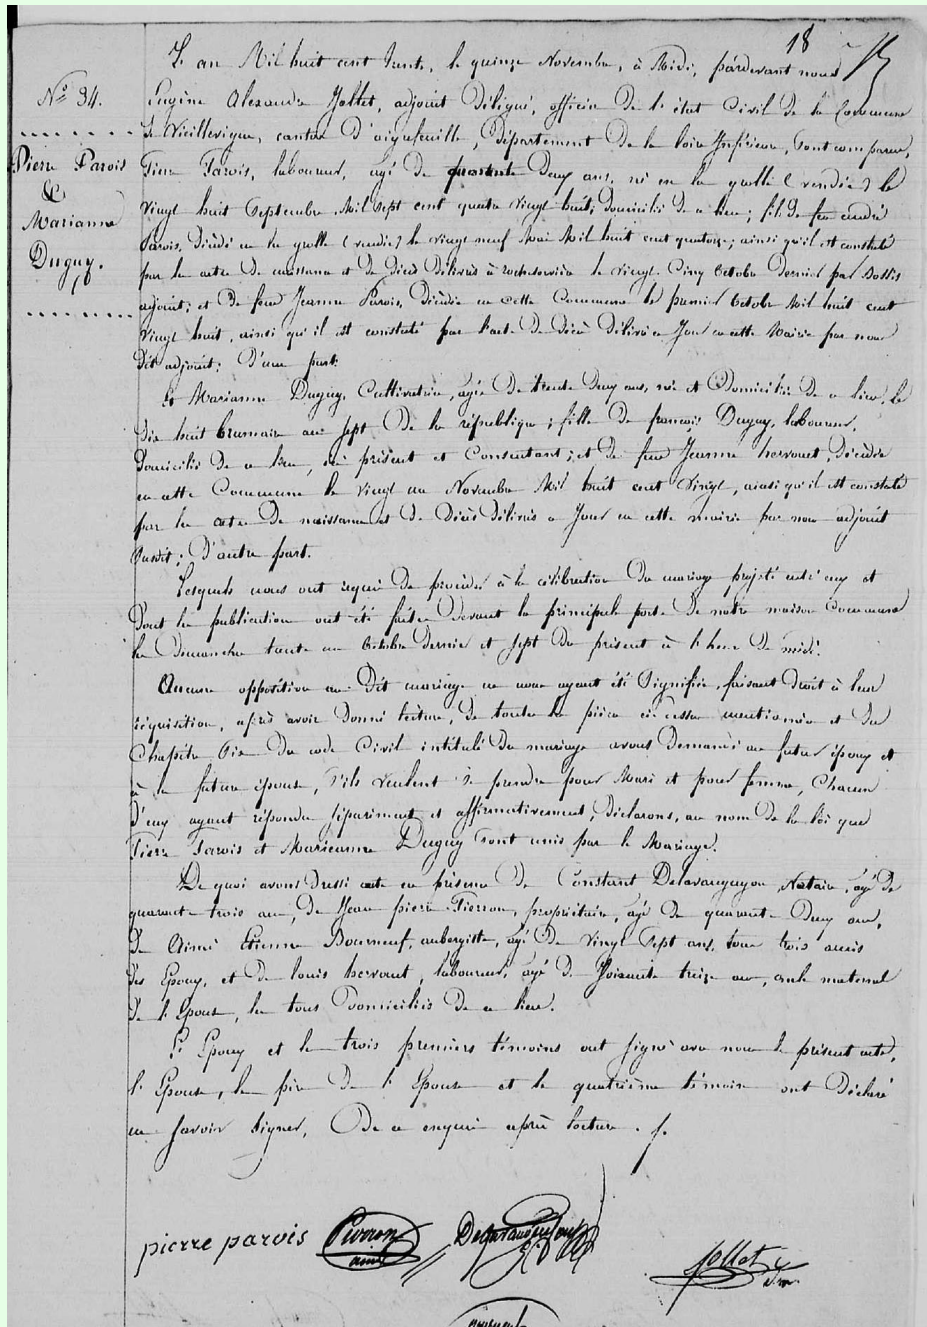 18
N° 34.
Pierre Parois
&
Marianne
Duguy.
L'an Mil huit cent trente, le quinze Novembre, à Midi, pardevant nous
Eugène Alexandre Jollet, adjoint délégué, officier de l'état Civil de la Commune
de Vieillevigne, canton d'aigrefeuille, département de la loire Inférieure, sont comparus,
Pierre Parois, laboureur, agé de quarante deux ans, né en la grolle (vendée) le
vingt huit Septembre Mil Sept cent quatre vingt huit, domicilié de ce lieu; fils de feu andré
Parois, décédé en la grolle (vendée) le vingt neuf Mai Mil huit cent quatorze; ainsi qu'il est constaté
par les actes de naissance et de décès délivrés à rocheservière le vingt Cinq Octobre dernier par
adjoint; et de feue Jeanne Parois, décédée en cette Commune le premier Octobre Mil huit cent
vingt huit, ainsi qu'il est constaté par l'acte de décès délivré ce Jour en cette Mairie par nous
dit adjoint; d'une part.
Et Marianne Duguy, Cultivatrice, agée de trente deux ans, née et Domiciliée de ce lieu, le
dix huit brumaire an sept de la république; fille de françois Duguy, laboureur,
domicilié de ce lieu, ici présent et Consentant; et de feue Jeanne hervouet, décédée
en cette Commune le vingt un Novembre Mil huit cent vingt, ainsi qu'il est constaté
par les actes de naissance et de décès délivrés ce Jour en cette mairie par nous adjoint
susdit; d'autre part.
Lesquels nous ont requis de procéder à la célébration du mariage projeté entr'eux et
dont les publications ont été faites devant la principale porte de notre maison Commune
les dimanches trente un Octobre dernier et sept du présent à l'heure de midi.
Aucune opposition au dit mariage ne nous ayant été signifiée, faisant droit à leur
réquisition, après avoir donné lecture, de toutes les pièces ci-dessus mentionnées et du
Chapitre six du code Civil intitulé du mariage avons demandé au futur époux et
à la future épouse, s'ils veulent se prendre pour Mari et pour femme, Chacun
d'eux ayant répondu séparément et affirmativement, déclarons, au nom de la loi que
Pierre Parois et Marianne Duguy sont unis par le Mariage.
De quoi avons dressé acte en présence de Constant Delavauguyon, Notaire, agé de
quarante trois ans, de Jean pierre Pierron, propriétaire, agé de quarante deux ans,
de Aimé Etienne Bourneuf, aubergiste, agé de vingt Sept ans, tous trois amis
des Epoux, et de louis hervouet, laboureur, agé de soixante treize ans, oncle maternel
de l'Epouse, les tous Domiciliés de ce lieu.
L'Epoux et les trois premiers témoins ont signé avec nous le présent acte,
l'Epouse, le père de l'Epouse et le quatrième témoin ont déclaré
ne savoir signer, de ce enquis après lecture.
pierre parois Pierron
ainé
Jollet